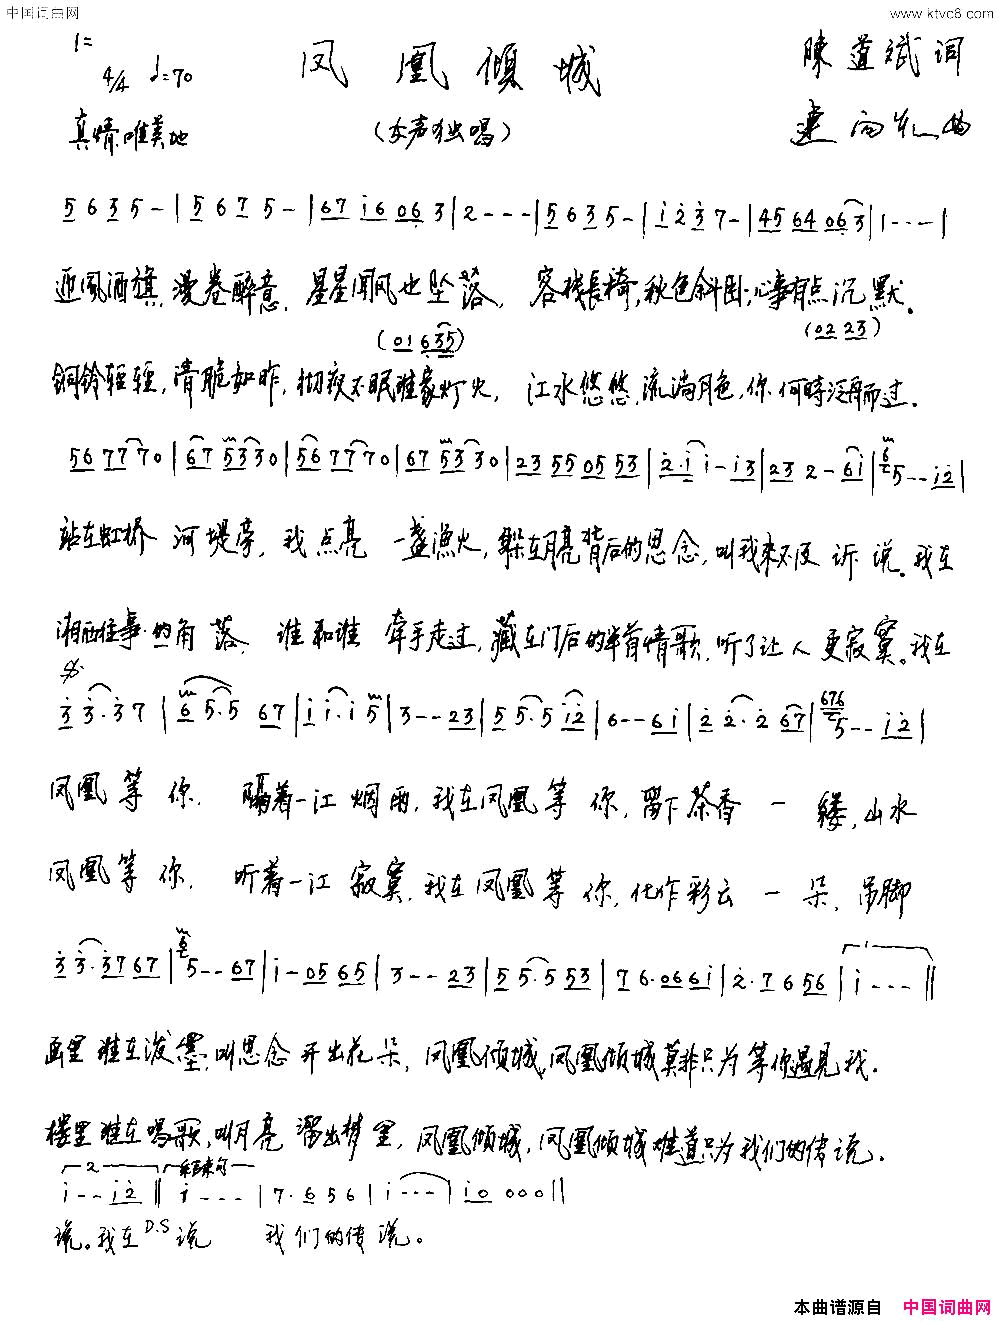 中国词曲网
www.ktvc8.com
1=
4/4 ♩=70
凤凰倾城
陳道斌 词
真情、唯美地
(女声独唱)
建 曲
5 6 3 5 - | 5 6 7 5 - | 67 i6 06 3 | 2 - - - | 5 6 3 5 - | i 2 3 7 - | 45 64 06 3 | 1 - - - |
迎風酒旗，漫卷醉意，星星闻风也坠落，客栈長椅，秋色斜卧，心事有点沉默。
(01 635)
(02 23)
銅铃轻轻，清脆如昨，彻夜不眠谁家灯火，江水悠悠，流淌月色，你何時泛舟而过。
56 77 70 | 67 53 30 | 56 77 70 | 67 53 30 | 23 55 05 53 | 2·i i - i3 | 23 2 - 6i | 6 5 - - i2 |
站在虹桥 河堤旁，我点亮 一盏漁火，躲在月亮背后的思念，叫我来不及诉说。我在
湘西往事的角落，谁和谁 牵手走过，藏在门后的半首情歌，听了让人更寂寞。我在
3 3·3 7 | 6 5·5 67 | i i·i 5 | 3 - - 23 | 5 5·5 i2 | 6 - - 6i | 2 2·2 67 | 676 5 - - i2 |
凤凰等你，隔着一江烟雨，我在凤凰等你，留下茶香一缕，山水
凤凰等你，听着一江寂寞，我在凤凰等你，化作彩云一朵，吊脚
3 3·37 67 | 6 5 - - 67 | i - 05 65 | 3 - - 23 | 5 5·5 53 | 7 6·06 6i | 2·7 6 56 | 1 i - - - ‖
画里谁在泼墨，叫思念开出花朵，凤凰倾城，凤凰倾城莫非只为等你遇见我。
楼里谁在唱歌，叫月亮溜出梦里，凤凰倾城，凤凰倾城难道只为我们的传说。
2 结束句
i - - i2 ‖ i - - - | 7·6 5 6 | i - - - | i0 0 0 0 ‖
说。我在 D.S 说 我们的传说。
本曲谱源自 中国词曲网